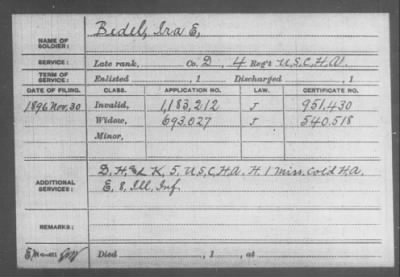 NAME OF SOLDIER: Bedell, Ira E,
SERVICE: Late rank, Co. D, 4 Reg't U.S.C.H.A.
TERM OF SERVICE: Enlisted , 1 Discharged , 1
DATE OF FILING. CLASS. APPLICATION NO. LAW. CERTIFICATE NO.
1896 Nov. 30 Invalid, 1,183,212 J 951,430
Widow, 693,027 J 540,518
Minor,
ADDITIONAL SERVICES: D. H. & K, 5, U.S.C.H.A. H. 1 Miss. Cold H.A.
E, 8, Ill, Inf
REMARKS:
Died , 1 , at